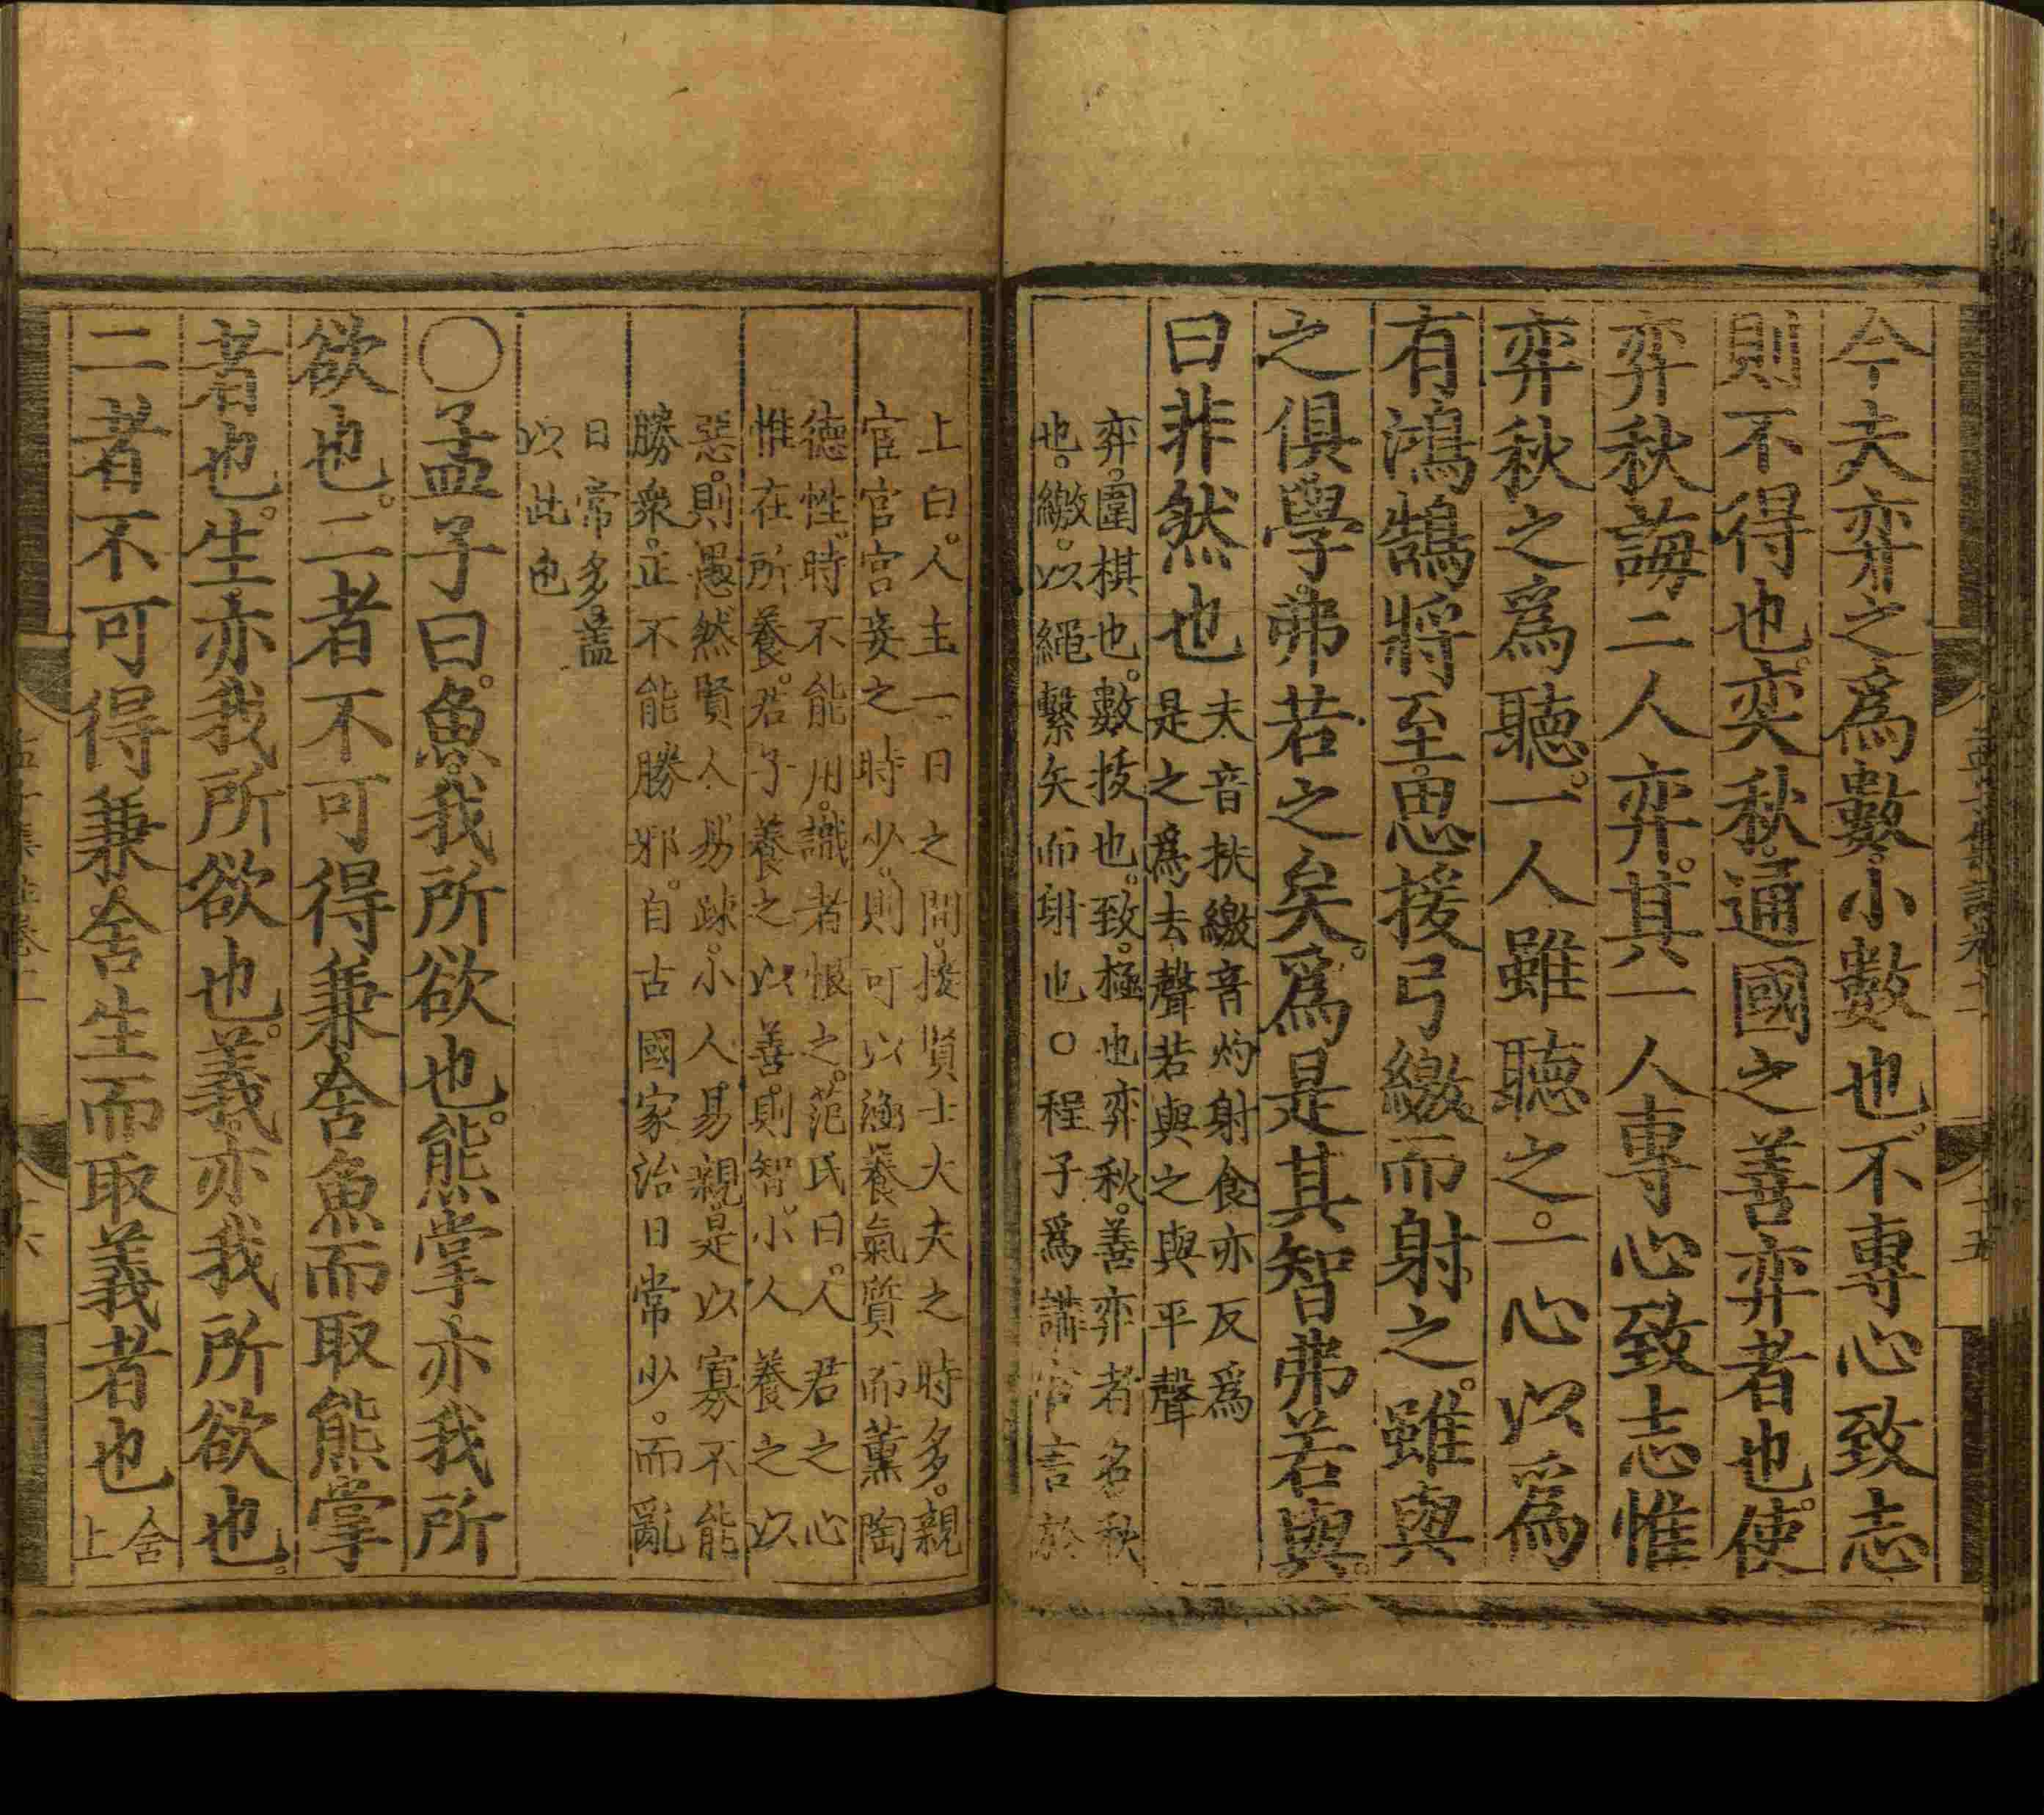 今夫弈之爲數。小數也。不專心致志
則不得也。奕秋。通國之善弈者也。使
弈秋誨二人弈。其一人專心致志惟
弈秋之爲聽。一人雖聽之。一心以爲
有鴻鵠將至。思援弓繳而射之。雖與
之俱學。弗若之矣。爲是其智弗若與。
曰非然也
夫音扶繳音灼射食亦反爲
是之爲去聲若與之與平聲
弈。圍棋也。數技也。致。極也弈秋。善弈者名秋
也。繳。以繩繫矢而射也○程子爲講官言於
上曰。人主一日之間。接賢士大夫之時多。親
宦官宮妾之時少。則可以涵養氣質而薰陶
德性。時不能用。識者恨之。范氏曰。人君之心
惟在所養。君子養之以善。則智。小人養之以
惡。則愚然賢人易踈。小人易親。是以寡不能
勝衆。正不能勝邪。自古國家治日常少。而亂
日常多。蓋
以此也
○孟子曰。魚。我所欲也。熊掌。亦我所
欲也。二者不可得兼。舍魚而取熊掌
者也。生。亦我所欲也。義。亦我所欲也。
二者不可得兼。舍生而取義者也
舍
上